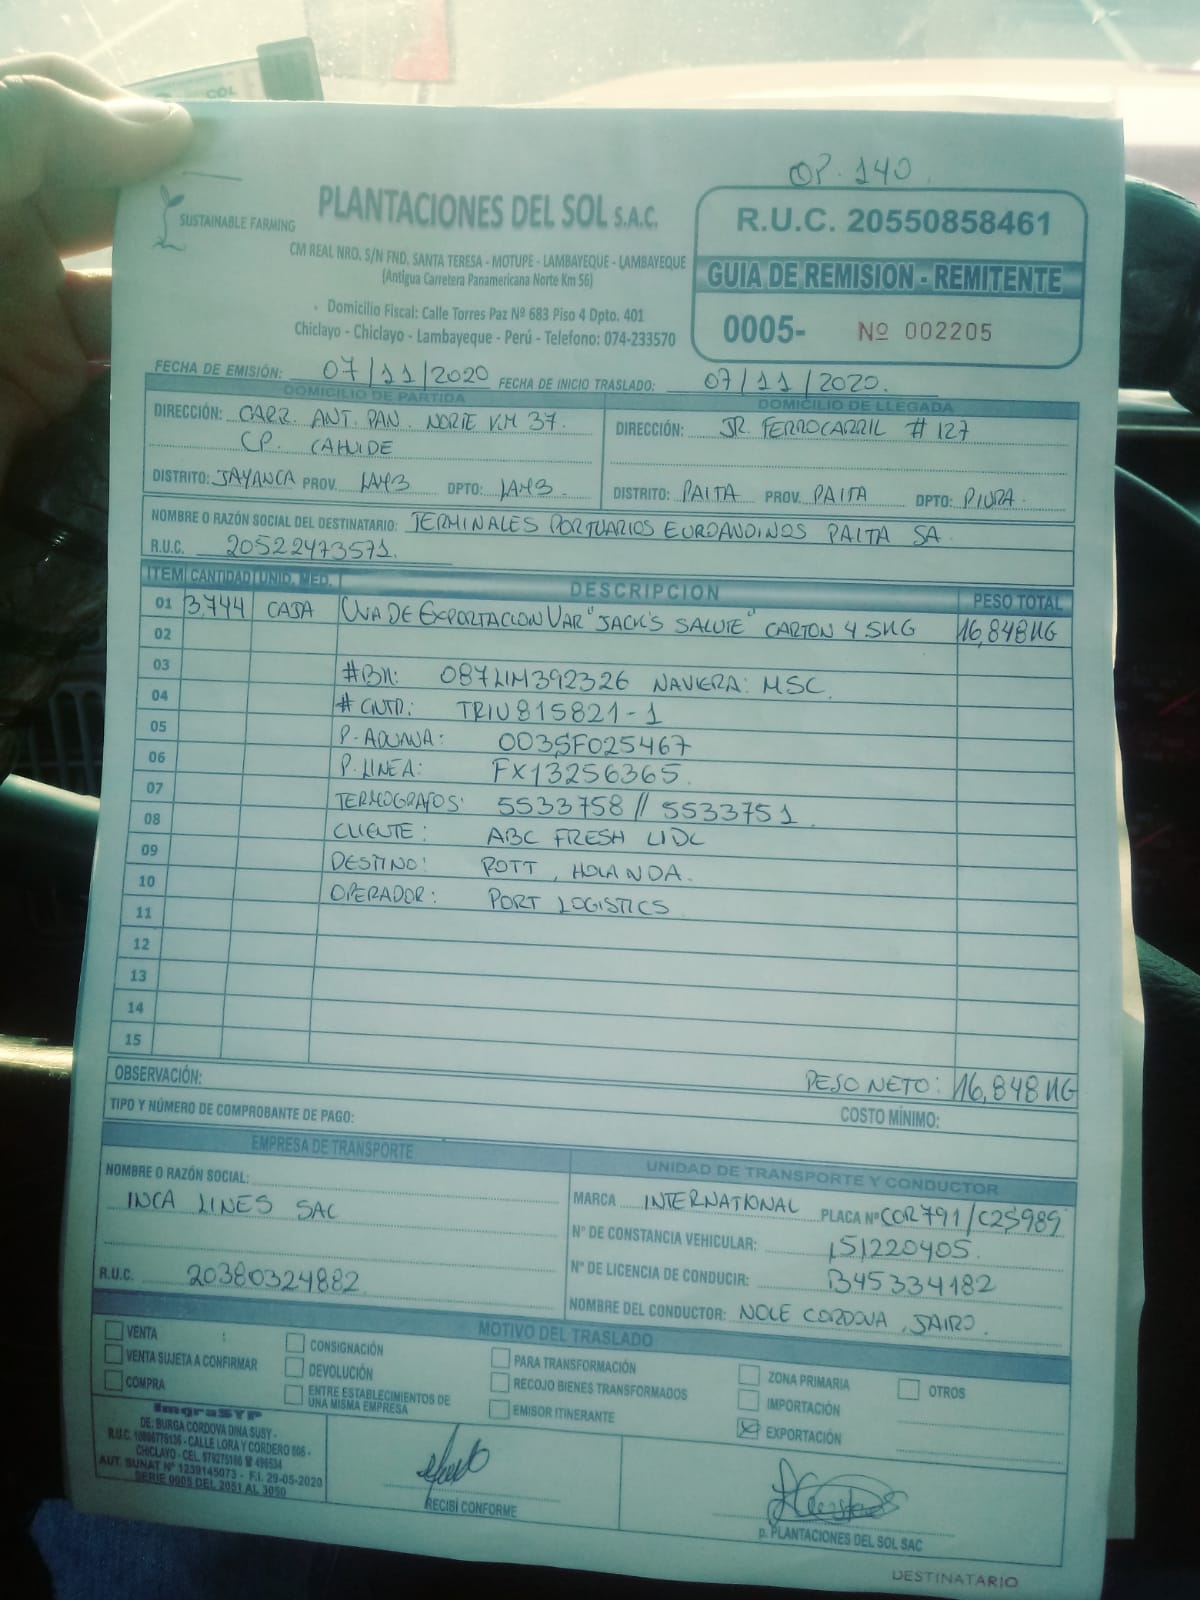 COL
OP. 140
SUSTAINABLE FARMING
PLANTACIONES DEL SOL S.A.C.
CM REAL NRO. S/N FND. SANTA TERESA - MOTUPE - LAMBAYEQUE - LAMBAYEQUE
(Antigua Carretera Panamericana Norte Km 56)
Domicilio Fiscal: Calle Torres Paz Nº 683 Piso 4 Dpto. 401
Chiclayo - Chiclayo - Lambayeque - Perú - Telefono: 074-233570
R.U.C. 20550858461
GUIA DE REMISION - REMITENTE
0005- Nº 002205
FECHA DE EMISIÓN: 07/11/2020 FECHA DE INICIO TRASLADO: 07/11/2020.
DOMICILIO DE PARTIDA
DIRECCIÓN: CARR. ANT. PAN. NORTE KM 37.
CP. CAHUIDE
DISTRITO: JAYANCA PROV. LAMB DPTO: LAMB.
DOMICILIO DE LLEGADA
DIRECCIÓN: JR. FERROCARRIL # 127
DISTRITO: PAITA PROV. PAITA DPTO: PIURA.
NOMBRE O RAZÓN SOCIAL DEL DESTINATARIO: TERMINALES PORTUARIOS EUROANDINOS PAITA SA.
R.U.C. 20522473571.
ITEM CANTIDAD UNID. MED. DESCRIPCION PESO TOTAL
01 3,744 CAJA UVA DE EXPORTACION VAR "JACK'S SALUTE" CARTON 4.5KG 16,848 KG
02
03 #BK: 087LIM392326 NAVIERA: MSC.
04 # CNTD.: TRIU815821-1
05 P. ADUANA: 003SF025467
06 P. LINEA: FX13256365.
07 TERMOGRAFOS: 5533758 // 5533751
08 CLIENTE: ABC FRESH LIDL
09 DESTINO: ROTT, HOLANDA.
10 OPERADOR: PORT LOGISTICS
11
12
13
14
15
OBSERVACIÓN: PESO NETO: 16,848 KG
TIPO Y NÚMERO DE COMPROBANTE DE PAGO: COSTO MÍNIMO:
EMPRESA DE TRANSPORTE
NOMBRE O RAZÓN SOCIAL:
INCA LINES SAC
R.U.C. 20380324882
UNIDAD DE TRANSPORTE Y CONDUCTOR
MARCA INTERNATIONAL PLACA Nº COR791/C2S989
Nº DE CONSTANCIA VEHICULAR: 151220405.
Nº DE LICENCIA DE CONDUCIR: B45334182
NOMBRE DEL CONDUCTOR: NOLE CORDOVA, JAIRO.
MOTIVO DEL TRASLADO
VENTA
VENTA SUJETA A CONFIRMAR
COMPRA
CONSIGNACIÓN
DEVOLUCIÓN
ENTRE ESTABLECIMIENTOS DE
UNA MISMA EMPRESA
PARA TRANSFORMACIÓN
RECOJO BIENES TRANSFORMADOS
EMISOR ITINERANTE
ZONA PRIMARIA
IMPORTACIÓN
EXPORTACIÓN
OTROS
ImgraSYP
DE: BURGA CORDOVA DINA SUSY -
R.U.C. - CALLE LORA Y CORDERO
CHICLAYO - CEL.
AUT. SUNAT Nº 1239145073 - F.I. 29-05-2020
SERIE 0005 DEL 2051 AL 3050
RECIBÍ CONFORME
p. PLANTACIONES DEL SOL SAC
DESTINATARIO